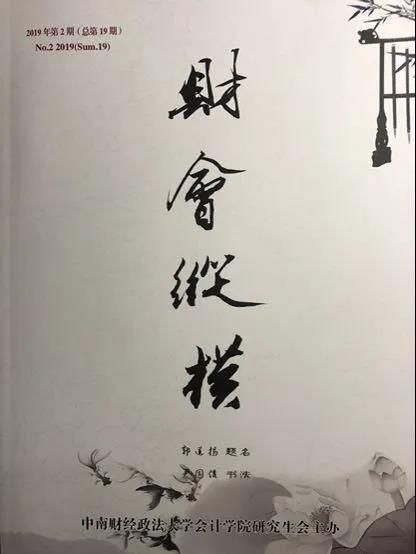 2019年第2期(总第19期)
No.2 2019(Sum.19)
財
會
縱
横
郭道扬 题名
国倩 书法
中南财经政法大学会计学院研究生会主办